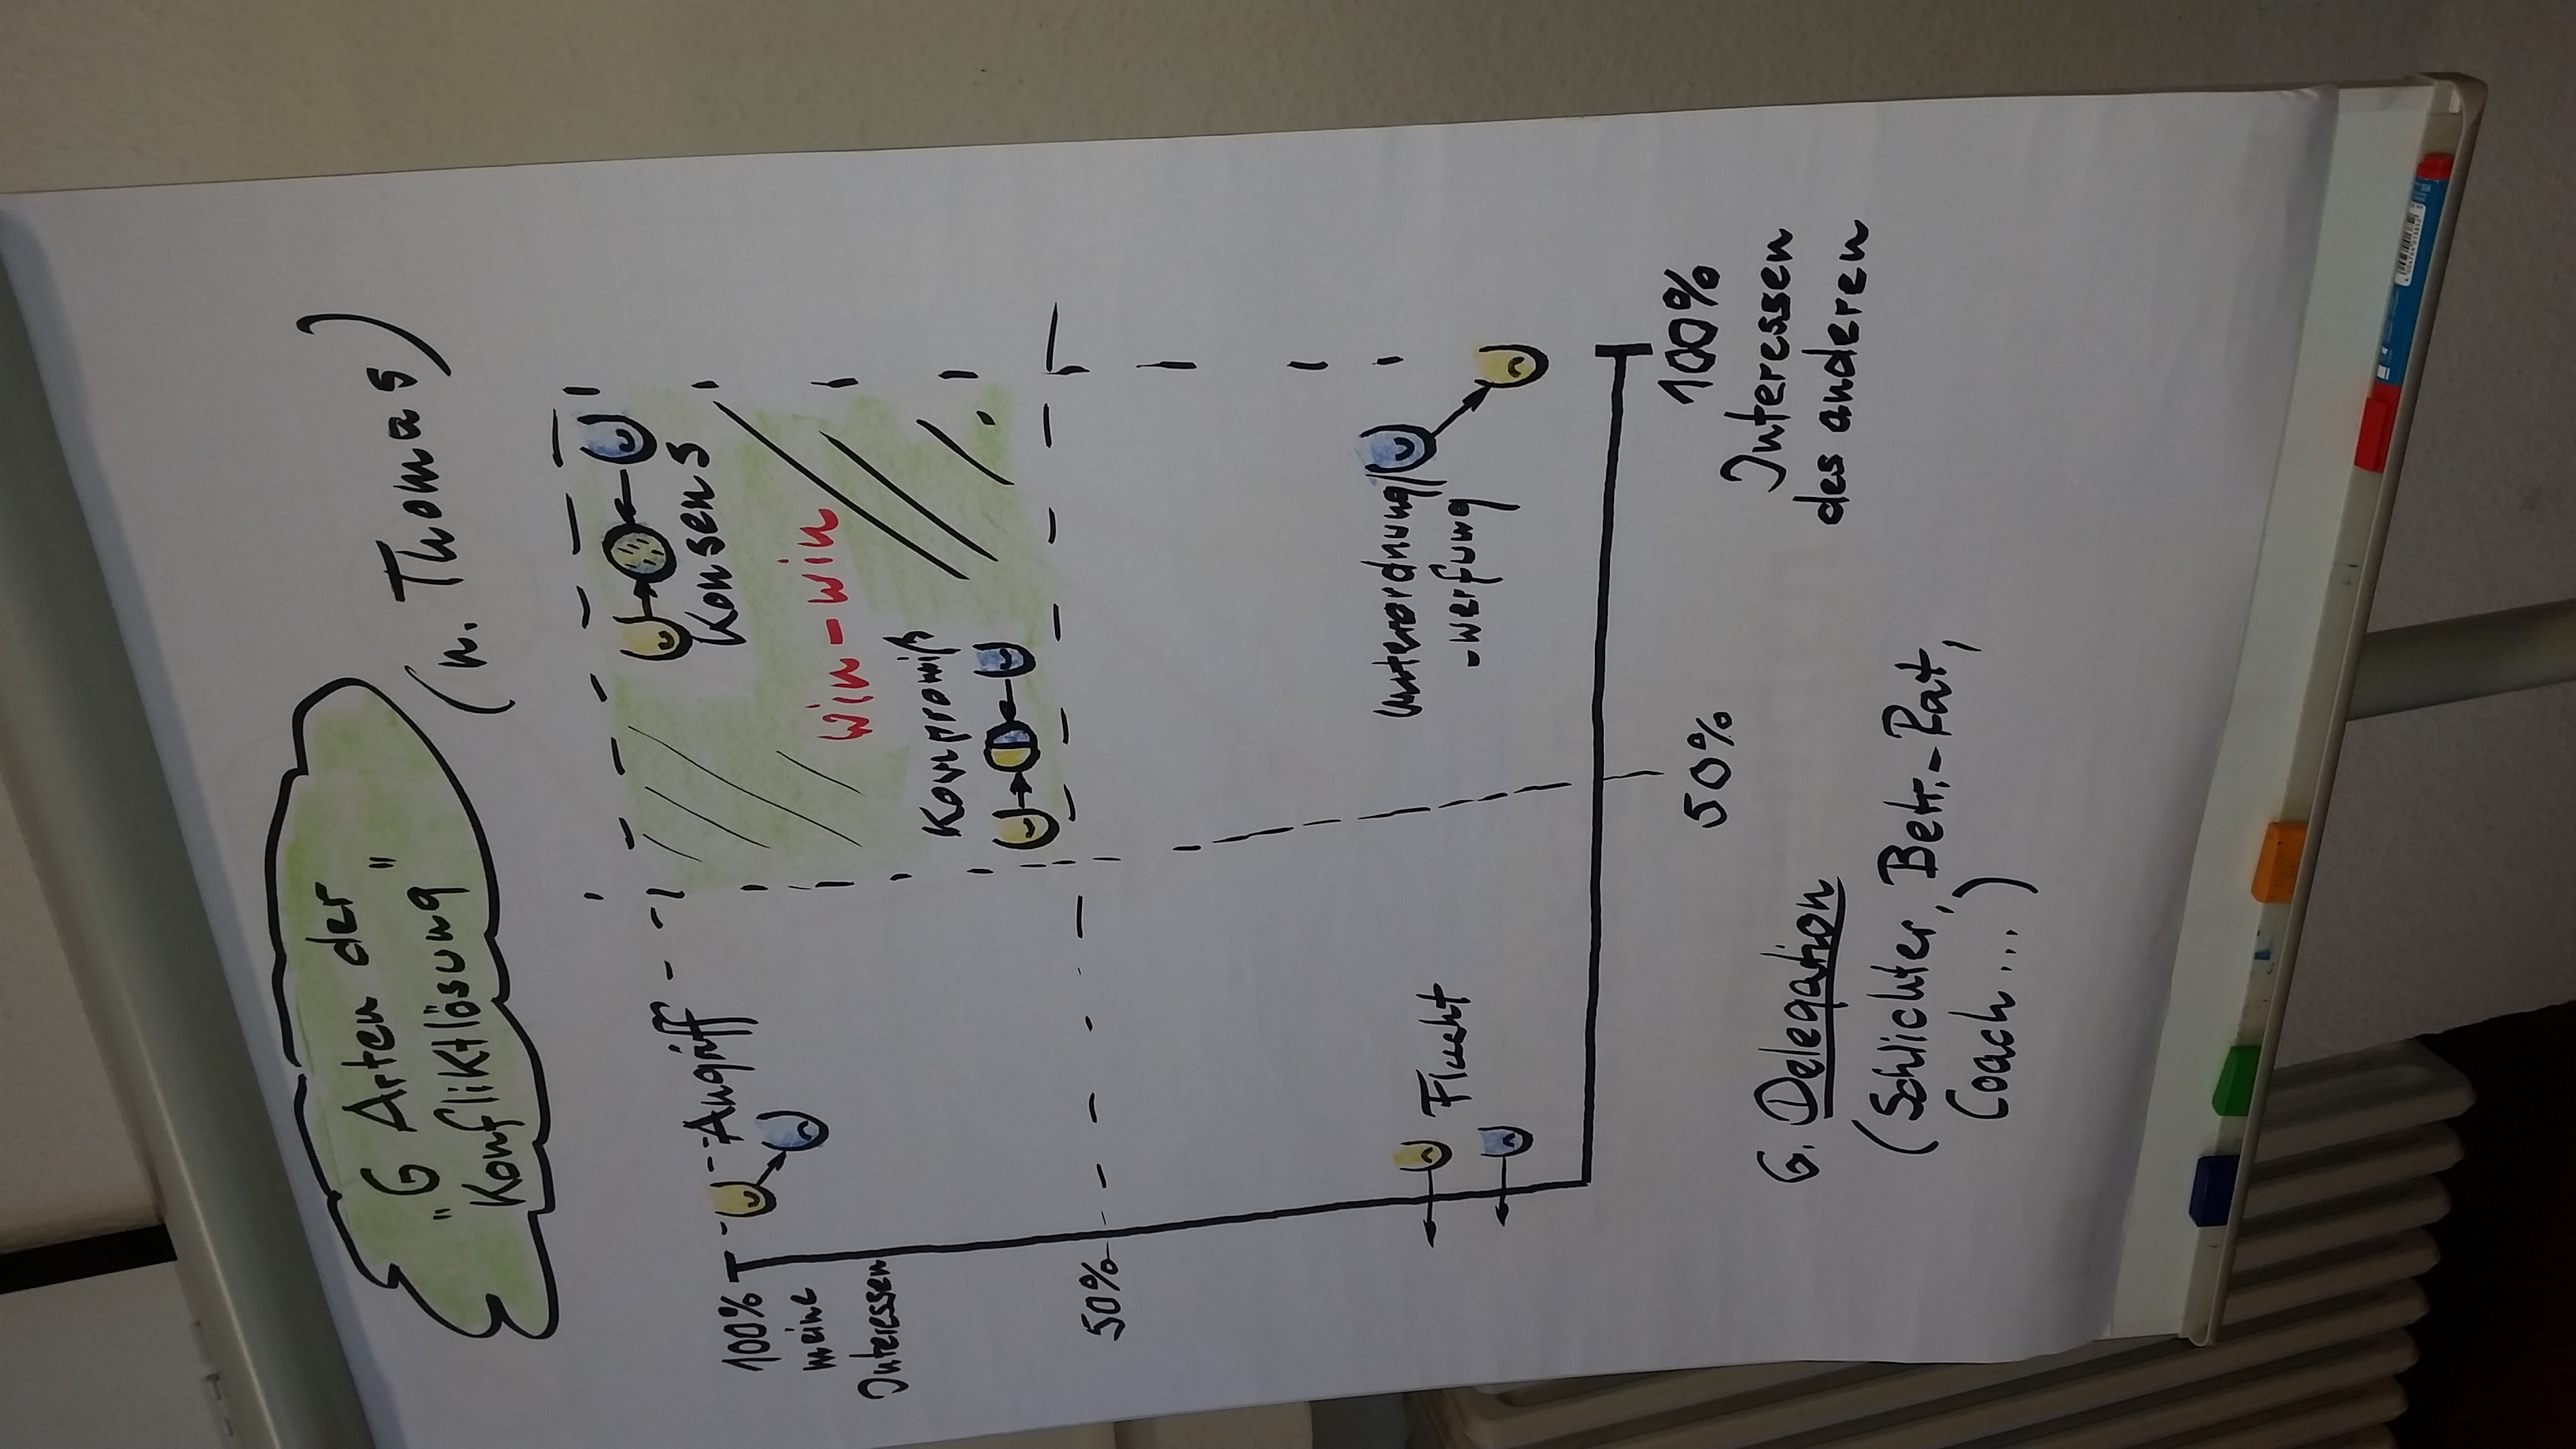 "6 Arten der
Konfliktlösung"
(n. Thomas)
Angriff
Konsens
100%
meine
Interessen
win-win
Kompromiß
50%
Flucht
Unterordnung/
-werfung
50%
100%
Interessen
des anderen
6. Delegation
(Schlichter, Betr.-Rat,
Coach...)